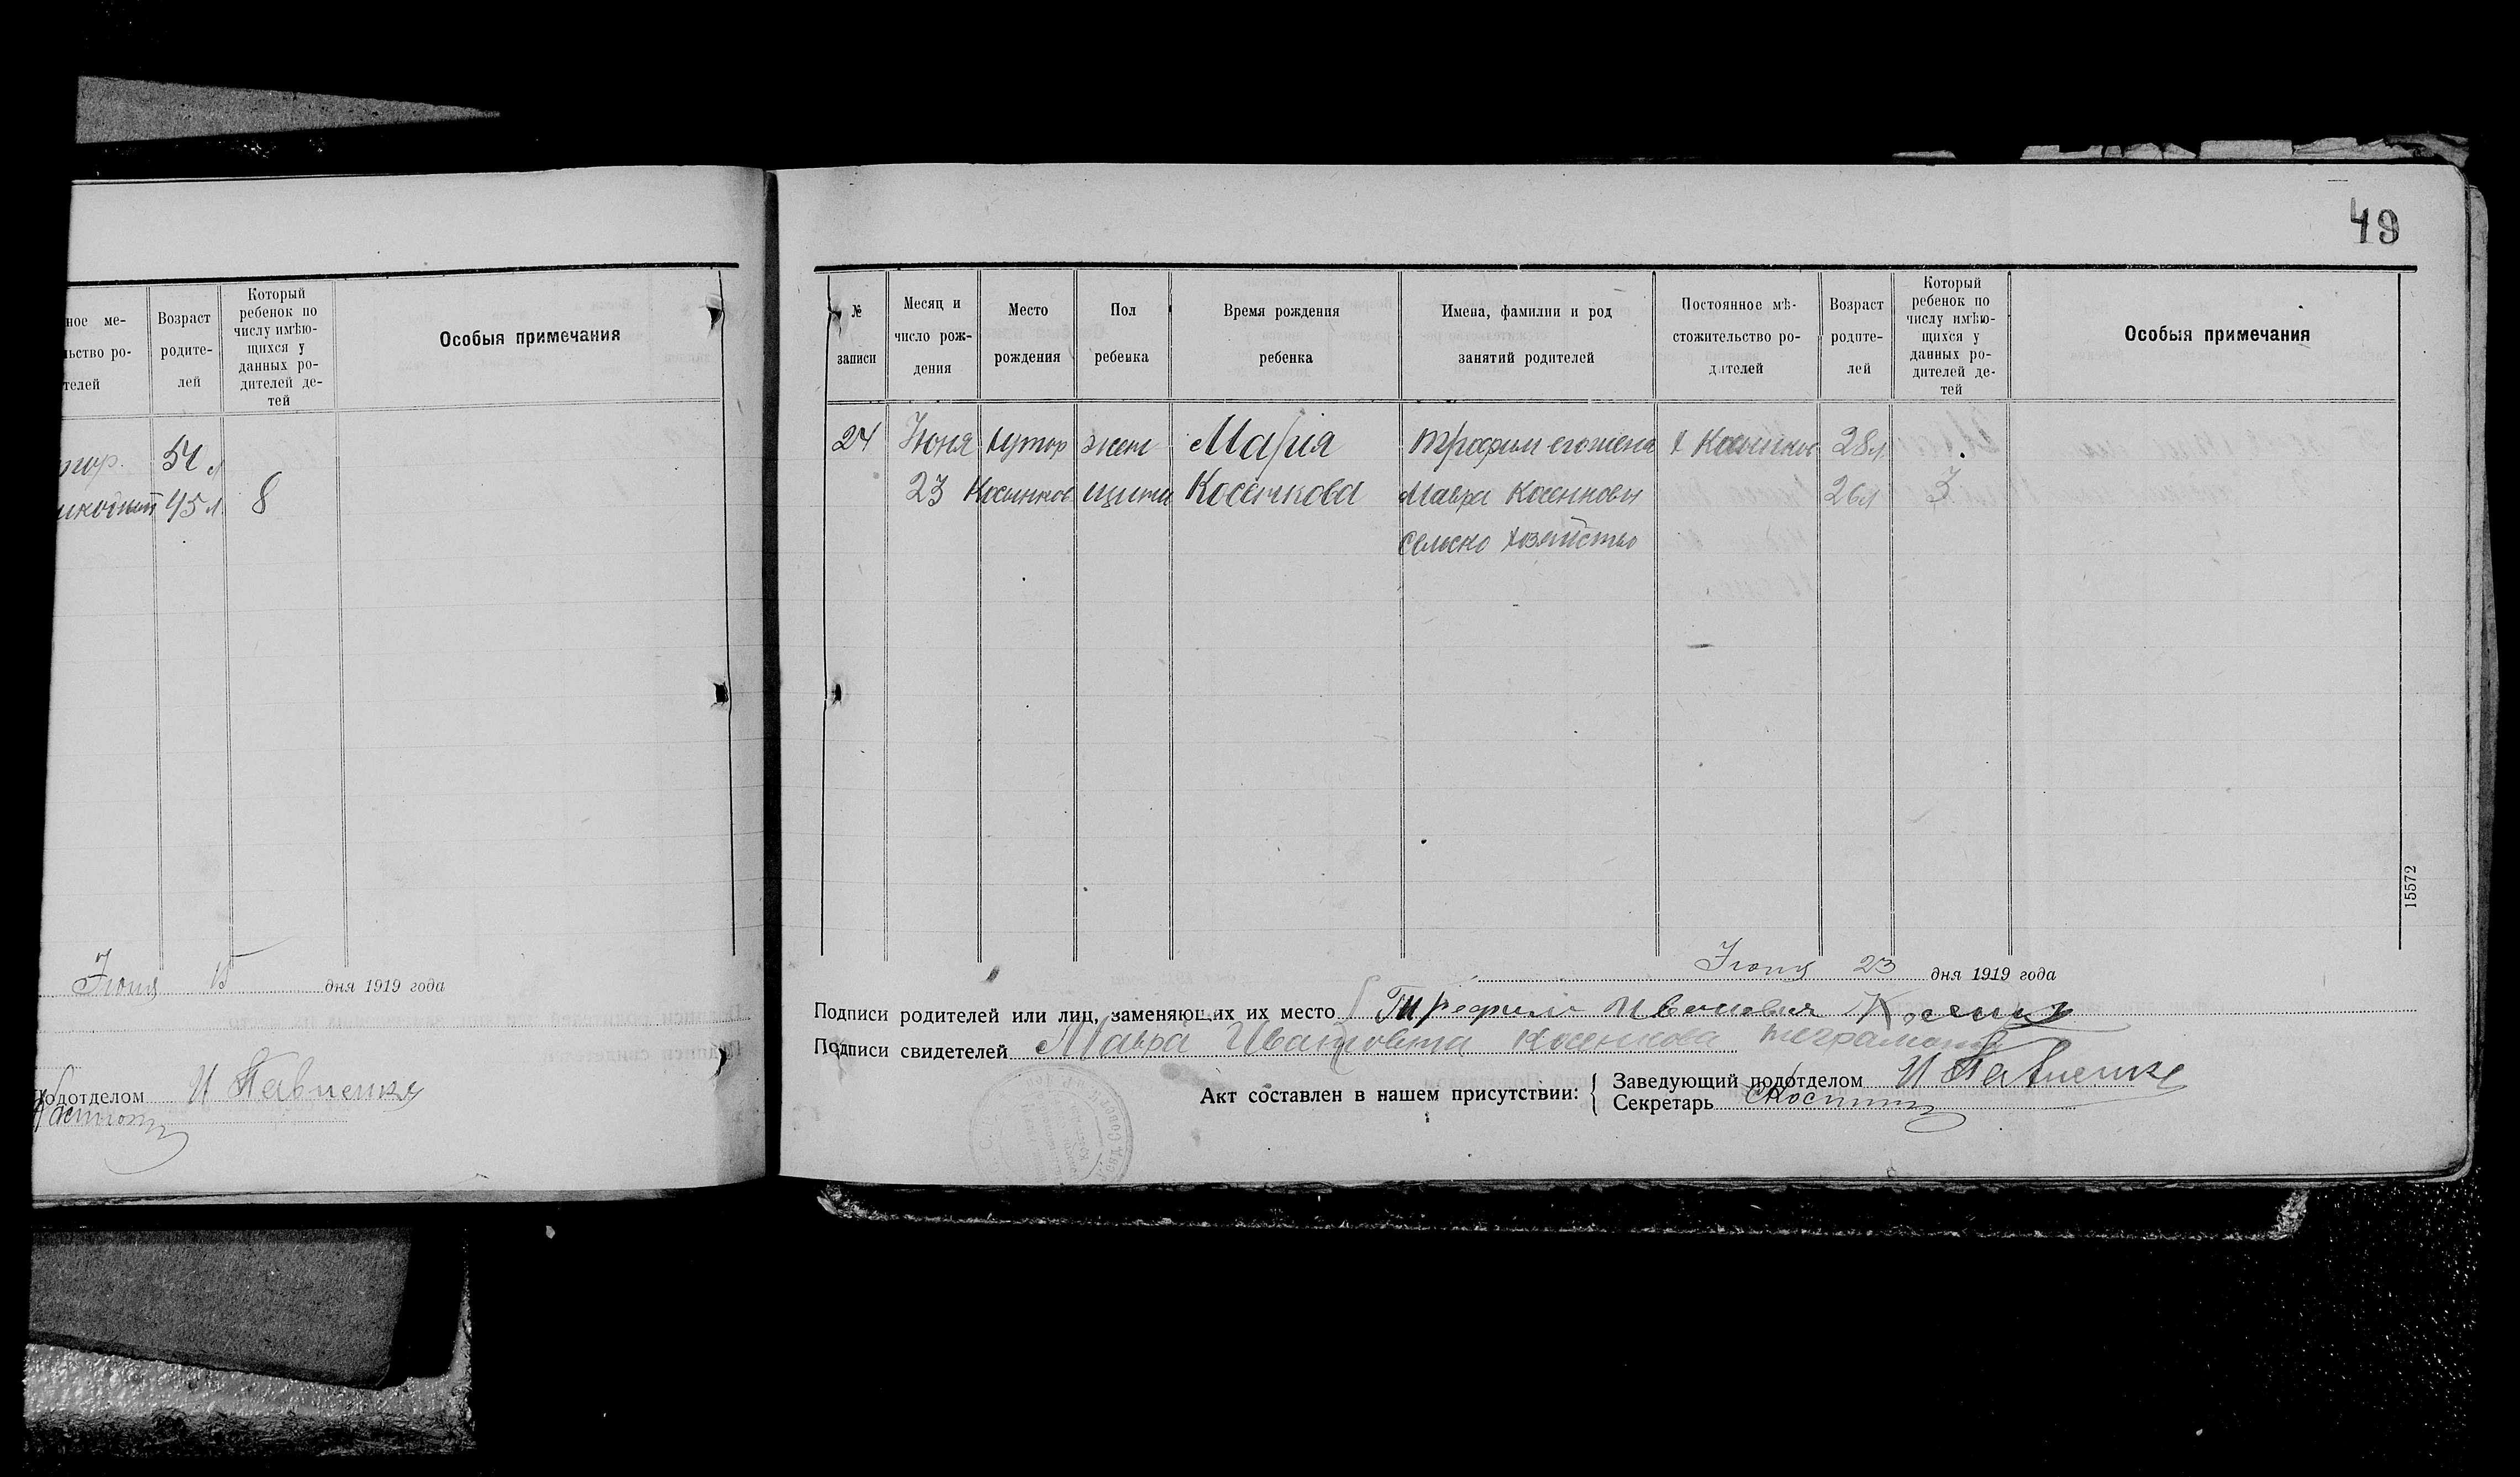 49
ное ме-
льство ро-
телей
Возраст
родите-
лей
Который
ребенок по
числу имѣю-
щихся у
данных ро-
дителей де-
тей
Особыя примечания
54 л
45 л.
8
Июня 15 дня 1919 года
подотделом И Павленко
№
записи
Месяц и
число рож-
дения
Место
рождения
Пол
ребенка
Время рождения
ребенка
Имена, фамилии и род
занятий родителей
Постоянное мѣ-
стожительство ро-
дителей
Возраст
родите-
лей
Который
ребенок по
числу имѣю-
щихся у
данных ро-
дителей де-
тей
Особыя примечания
24 Июня хутор жен Мария Трофим его жена х Косенков 28л
23 Косенков щина Косенкова Мавра Косенковы 26л 3
Сельско хозяйство
15572
Июня 23 дня 1919 года
Подписи родителей или лиц, заменяющих их место Трофим Иванович
Подписи свидетелей Мавра Ивановна Косенкова неграмотна
Акт составлен в нашем присутствии:
Заведующий подотделом И Павленко
Секретарь